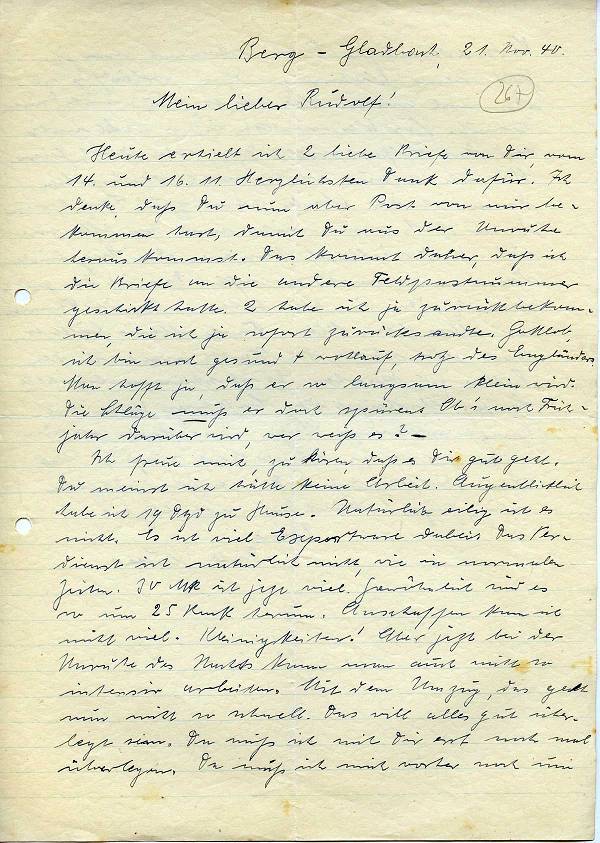 Berg - Gladbach, 21. Nov. 40.
267
Mein lieber Rudolf!
Heute erhielt ich 2 liebe Briefe von Dir, vom
14. und 16. 11. Herzlichsten Dank dafür. Ich
denke, daß Du nun aber Post von mir be-
kommen hast, damit Du aus der Unruhe
heraus kommst. Das kommt daher, daß ich
die Briefe an die andere Feldpostnummer
geschickt hatte. 2 habe ich ja zurückbekom-
men, die ich ja sofort zurücksandte. Gottlob,
ich bin noch gesund + wohlauf, trotz des Engländers.
Man hofft ja, daß er so langsam klein wird.
Die Schläge muß er doch spüren. Ob's noch Früh-
jahr darüber wird, wer weiß es? -
Ich freue mich, zu hören daß es Dir gut geht.
Du meinst ich hätte keine Arbeit. Augenblicklich
habe ich 19 Dzd zu Hause. Natürlich eilig ist es
nicht. Es ist viel Exportware dabei. Das Ver-
dienst ist natürlich nicht, wie in normalen
Zeiten. 30 Mk ist jetzt viel. Gewöhnlich sind es
so um 25 Mark herum. Anschaffen kann ich
nicht viel. Kleinigkeiten! Aber jetzt bei der
Unruhe des Nachts kann man auch nicht so
intensiv arbeiten. Mit dem Umzug, das geht
nun nicht so schnell. Das will alles gut über-
legt sein. Da muß ich mit Dir erst noch mal
überlegen. Da muß ich mich vorher noch um